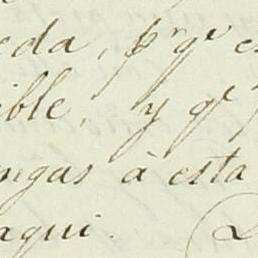 eda, pr qe es
ible, y qe
ngas à esta
aqui.